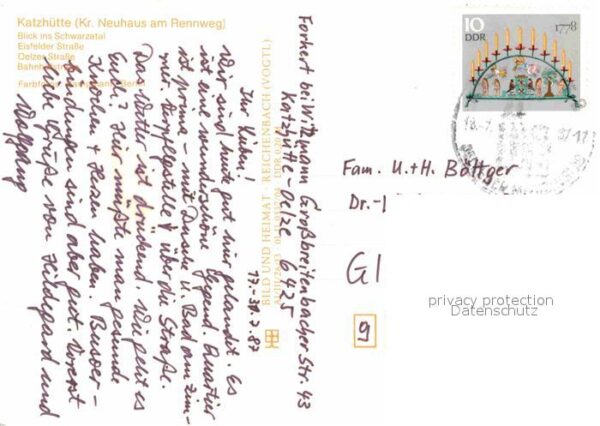 Katzhütte (Kr. Neuhaus am Rennweg)
Blick ins Schwarzatal
Eisfelder Straße
Oelzer Straße
Bahnhofstraße
BILD UND HEIMAT · REICHENBACH (VOGTL)
17.-30.7.87
Forkert bei Witzmann Großbreitenbacher Str. 43
Katzhütte-Oelze 6425
Ihr Lieben!
Wir sind heute gut hier gelandet. Es
ist eine wunderschöne Gegend. Quartier
ist prima – mit Dusche u. Bad am Zim-
mer. Verpflegstelle über die Straße.
Das Wetter ist drückend. Wie geht es
Euch? Hier müßte man gesunde
Knochen + Herzen haben. Busver-
bindungen sind aber gut. Vorerst
liebe Grüße von Hildegard und
Wolfgang
10
DDR
1778
Fam. U.+H. Böttger
Dr.-
G
9
privacy protection
Datenschutz